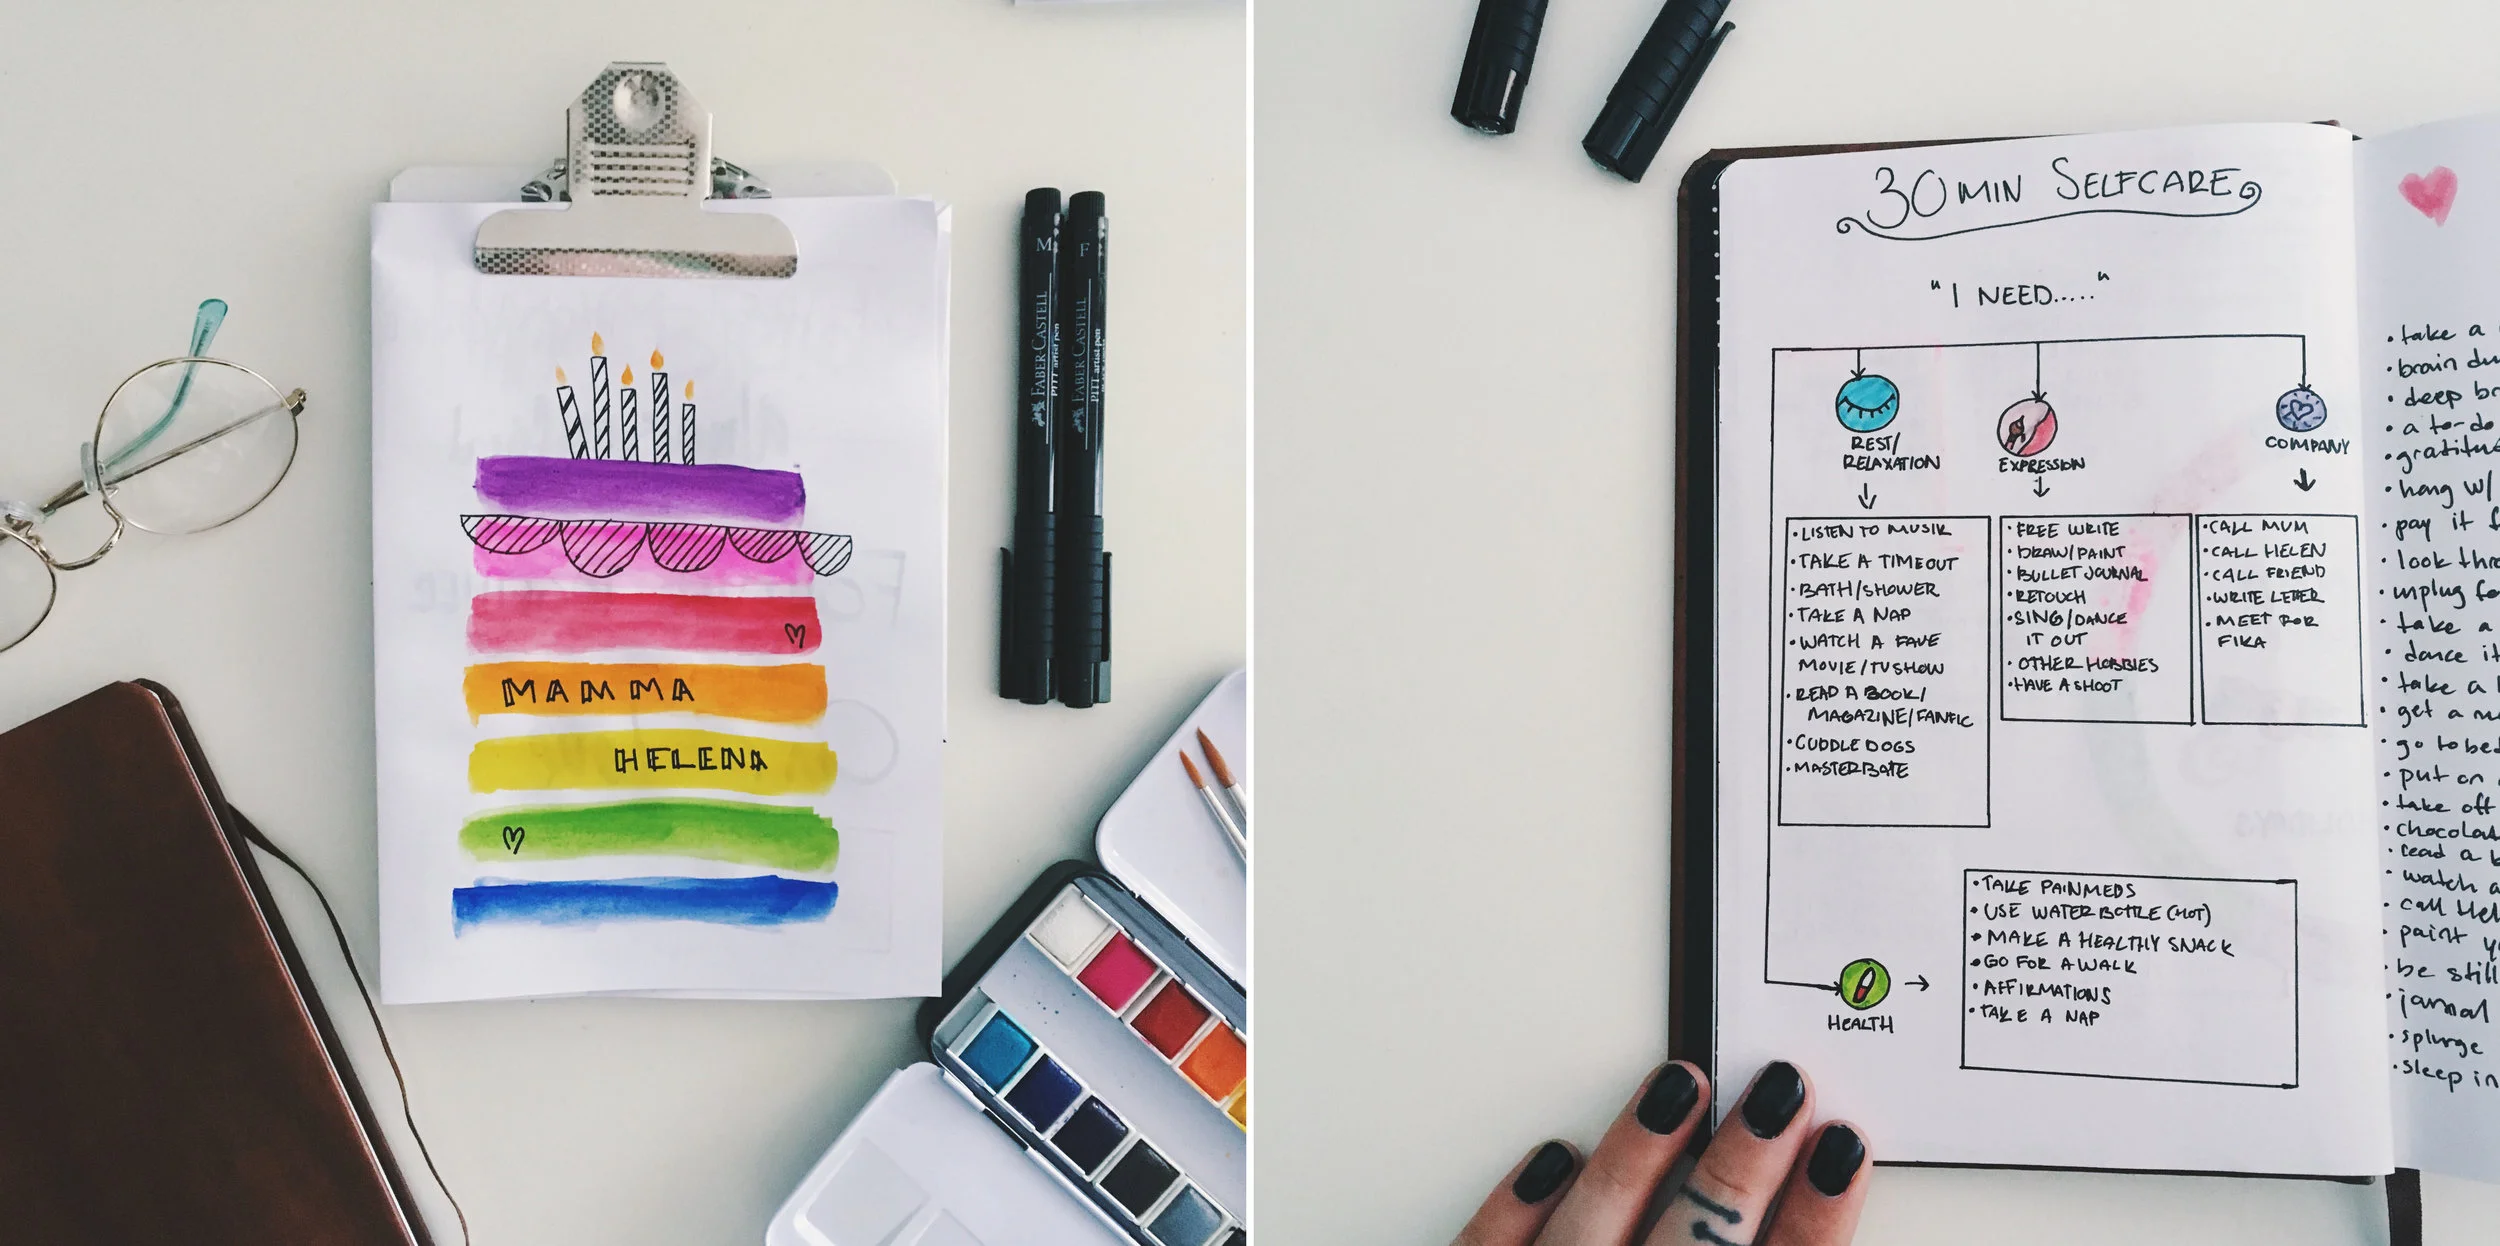 MAMMA
HELENA
M
FABER-CASTELL
PITT artist pen
F
FABER-CASTELL
PITT artist pen
30 MIN SELFCARE
"I NEED....."
REST/
RELAXATION
EXPRESSION
COMPANY
• LISTEN TO MUSIK
• TAKE A TIMEOUT
• BATH/SHOWER
• TAKE A NAP
• WATCH A FAVE
MOVIE/TVSHOW
• READ A BOOK/
MAGAZINE/FANFIC
• CUDDLE DOGS
• MASTERBATE
• FREE WRITE
• DRAW/PAINT
• BULLET JOURNAL
• RETOUCH
• SING/DANCE
IT OUT
• OTHER HOBBIES
• HAVE A SHOOT
• CALL MUM
• CALL HELEN
• CALL FRIEND
• WRITE LETTER
• MEET FOR
FIKA
HEALTH
• TAKE PAINMEDS
• USE WATER BOTTLE (HOT)
• MAKE A HEALTHY SNACK
• GO FOR A WALK
• AFFIRMATIONS
• TAKE A NAP
• take a
• brain
• deep
• a to-do
•
• hang w/
• pay it
• look
• unplug
• take a
• dance
• take a
• get a
• go to bed
• put on
• take off
•
• read a
• watch a
• call
• paint
• be still
• jornal
• splurge
• sleep in